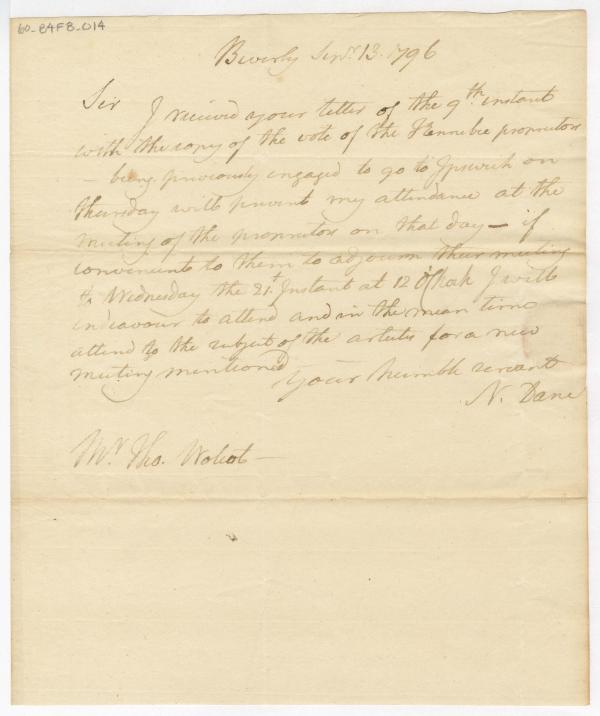 60-E4FB-014
Beverly Sepr. 13. 1796
Sir I received your letter of the 9th instant
with the copy of the vote of the Kennebec proprietors
— being previously engaged to go to Ipswich on
thursday will prevent my attendance at the
meeting of the proprietors on that day — if
convenient to them to adjourn their meeting
to Wednesday the 21t Instant at 12 O'Clock I will
endeavour to attend and in the mean time
attend to the subject of the articles for a new
meeting mentioned
Your humble servant
N. Dane
Mr. Tho. Wolcot —